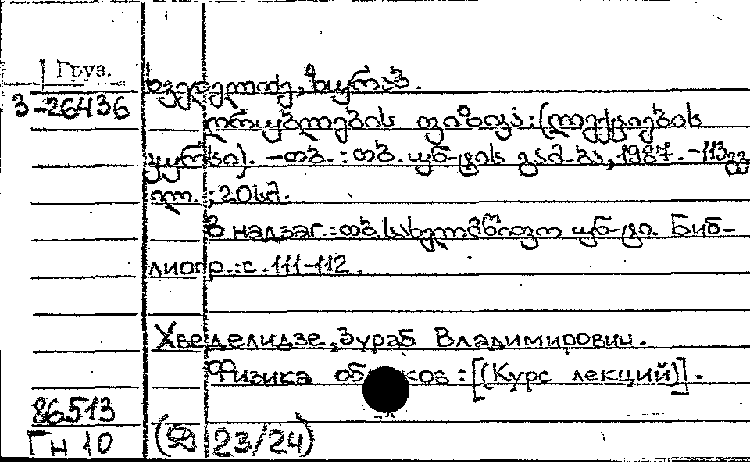 Груз.
ხვედელიძე, ზურაბ.
3-26436
ღრუბლების ფიზიკა : (ლექციების
კურსი). – თბ. : თბ. უნ-ტის გამ-ბა, 1987. – 113 გვ
ილ. ; 20 სმ.
В надзаг.: თბ. სახელმწიფო უნ-ტი. Биб-
лиогр.: с. 111-112.
Хведелидзе, Зураб Владимирович.
Физика об ков : [(Курс лекций)].
86513
ГН 10 (Д 23/24)